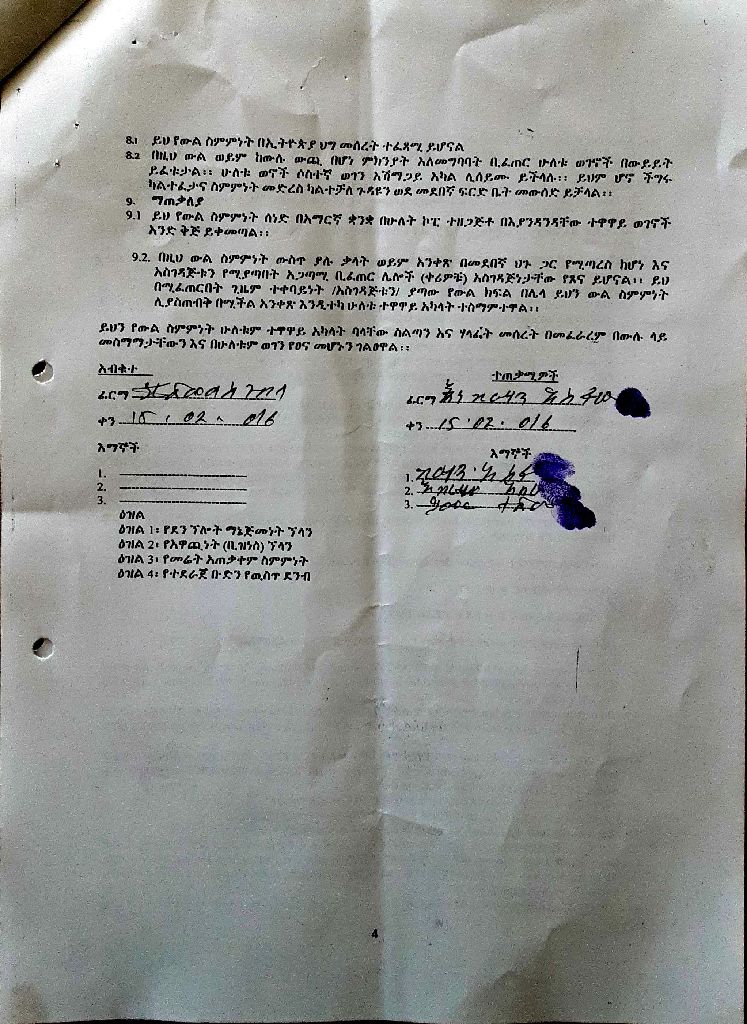 8.1 ይህ የውል ስምምነት በኢትዮጵያ ህግ መሰረት ተፈጻሚ ይሆናል
8.2 በዚህ ውል ወይም ከውሉ ውጪ በሆነ ምክንያት አለመግባባት ቢፈጠር ሁለቱ ወገኖች በውይይት
ይፈቱታል፡፡ ሁለቱ ወኖች ሶስተኛ ወገን አሸማጋይ አካል ሊሰይሙ ይችላሉ፡፡ ይህም ሆኖ ችግሩ
ካልተፈታና ስምምነት መድረስ ካልተቻለ ጉዳዩን ወደ መደበኛ ፍርድ ቤት መውሰድ ይቻላል፡፡
9. ማጠቃለያ
9.1 ይህ የውል ስምምነት ሰነድ በአማርኛ ቋንቋ በሁለት ኮፒ ተዘጋጅቶ በእያንዳንዳቸው ተዋዋይ ወገኖች
አንድ ቅጅ ይቀመጣል፡፡
9.2. በዚህ ውል ስምምነት ውስጥ ያሉ ቃላት ወይም አንቀጽ በመደበኛ ህጉ ጋር የሚጣረስ ከሆነ እና
አስገዳጅቱን የሚያጣበት አጋጣሚ ቢፈጠር ሌሎች (ቀሪዎቹ) አስገዳጅነታቸው የጸና ይሆናል፡፡ ይህ
በሚፈጠርበት ጊዜም ተቀባይነት /አስገዳጅቱን/ ያጣው የውል ክፍል በሌላ ይህን ውል ስምምነት
ሊያስጠብቅ በሚችል አንቀጽ እንዲተካ ሁለቱ ተዋዋይ አካላት ተስማምተዋል፡፡
ይህን የውል ስምምነት ሁለቱም ተዋዋይ አካላት ባላቸው ስልጣን እና ሃላፊት መሰረት በመፈራረም በውሉ ላይ
መስማማታቸውን እና በሁለቱም ወገን የፀና መሆኑን ገልፀዋል፡፡
አብቁተ
ፊርማ
ቀን 15 . 02 . 016
እማኞች
1.
2.
3.
ተጠቃሚዎች
ፊርማ
ቀን 15 . 02 . 016
እማኞች
1.
2.
3.
ዕዝል
ዕዝል 1፡ የደን ፕሎት ማኔጅመነት ፕላን
ዕዝል 2፡ የአዋጪነት (ቢዝነስ) ፕላን
ዕዝል 3፡ የመሬት አጠቃቀም ስምምነት
ዕዝል 4፡ የተደራጀ ቡድን የዉስጥ ደንብ
4